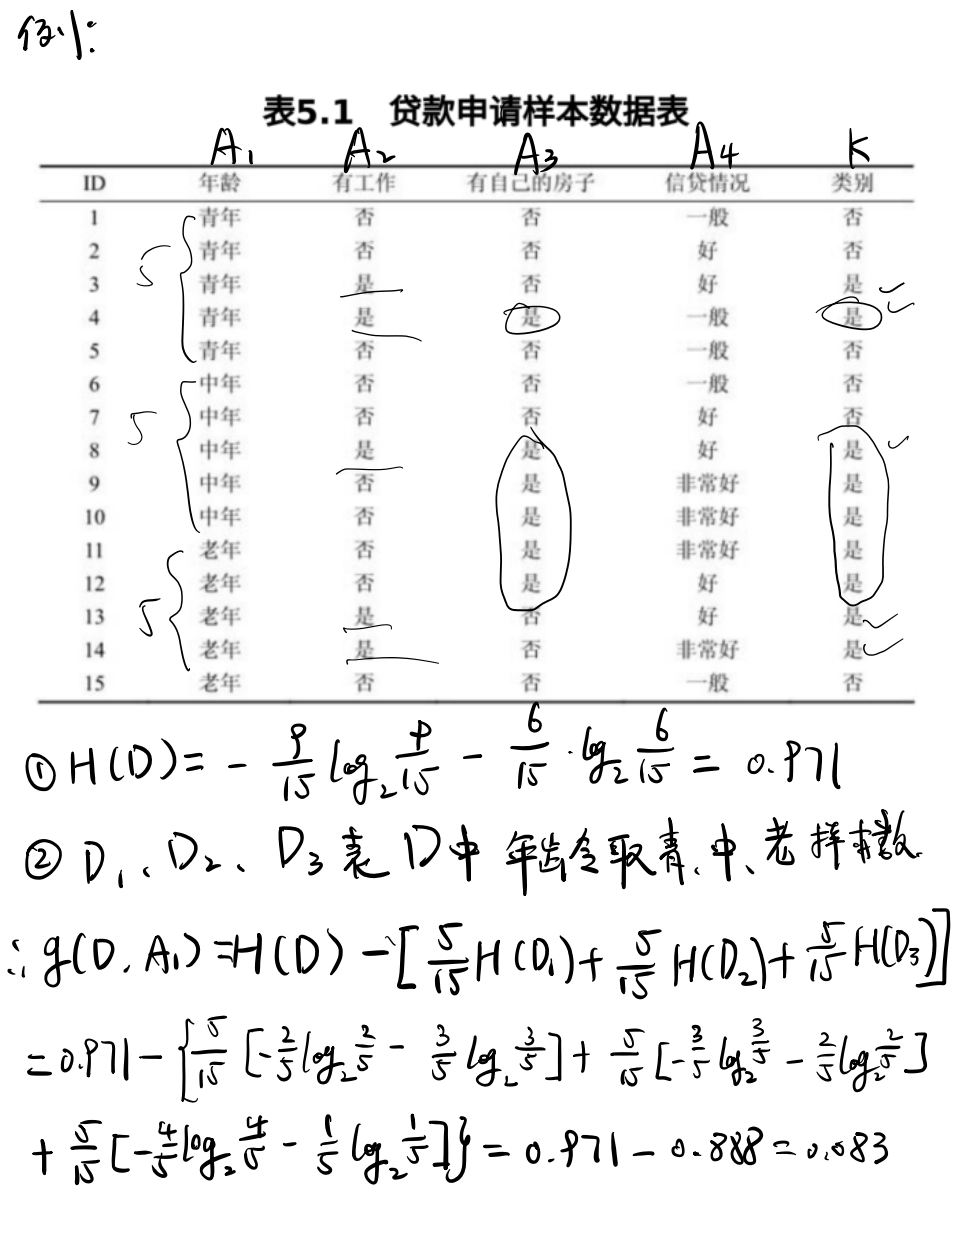 例1:
表5.1 贷款申请样本数据表
A₁ A₂ A₃ A₄ K
ID 年龄 有工作 有自己的房子 信贷情况 类别
1 青年 否 否 一般 否
2 青年 否 否 好 否
3 青年 是 否 好 是
4 青年 是 是 一般 是
5 青年 否 否 一般 否
6 中年 否 否 一般 否
7 中年 否 否 好 否
8 中年 是 是 好 是
9 中年 否 是 非常好 是
10 中年 否 是 非常好 是
11 老年 否 是 非常好 是
12 老年 否 是 好 是
13 老年 是 否 好 是
14 老年 是 否 非常好 是
15 老年 否 否 一般 否
5
5
5
① H(D) = - 9/15 log₂ 9/15 - 6/15 · log₂ 6/15 = 0.971
② D₁、D₂、D₃ 表 D中 年龄取青、中、老样本数.
∴ g(D, A₁) = H(D) - [5/15 H(D₁) + 5/15 H(D₂) + 5/15 H(D₃)]
= 0.971 - {5/15 [-2/5 log₂ 2/5 - 3/5 log₂ 3/5] + 5/15 [-3/5 log₂ 3/5 - 2/5 log₂ 2/5]
+ 5/15 [-4/5 log₂ 4/5 - 1/5 log₂ 1/5]} = 0.971 - 0.888 = 0.083